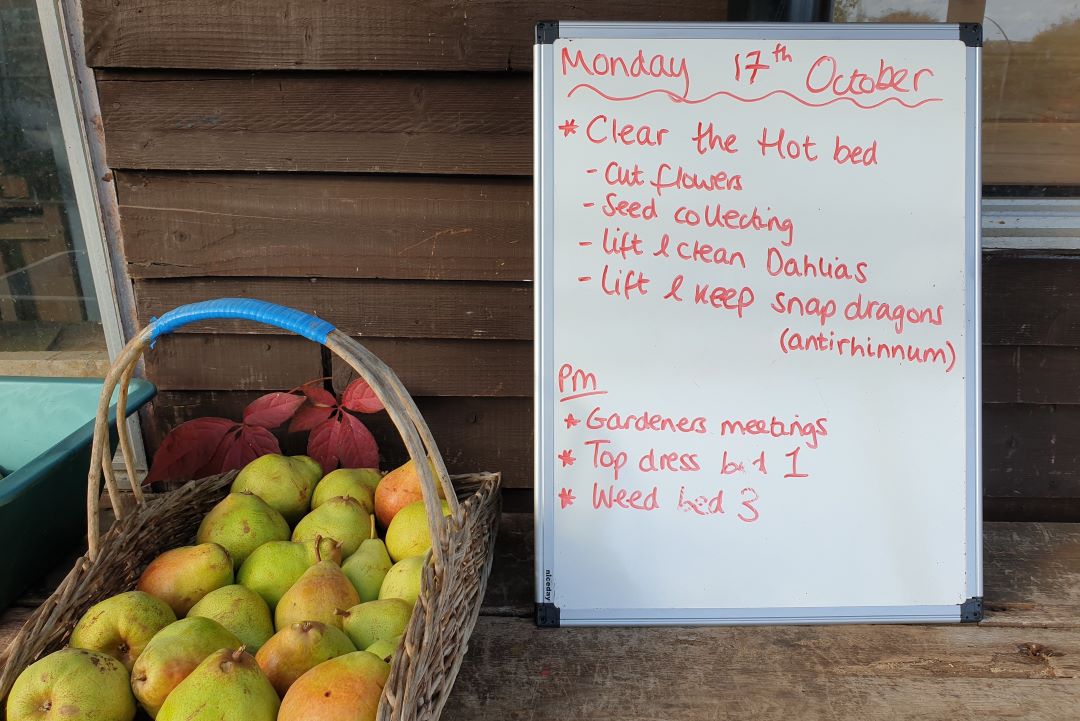 Monday 17th October
* Clear the Hot bed
- Cut flowers
- Seed collecting
- lift & clean Dahlias
- lift & keep snap dragons
(antirhinnum)
Pm
* Gardeners meetings
* Top dress bed 1
* Weed bed 3
niceday